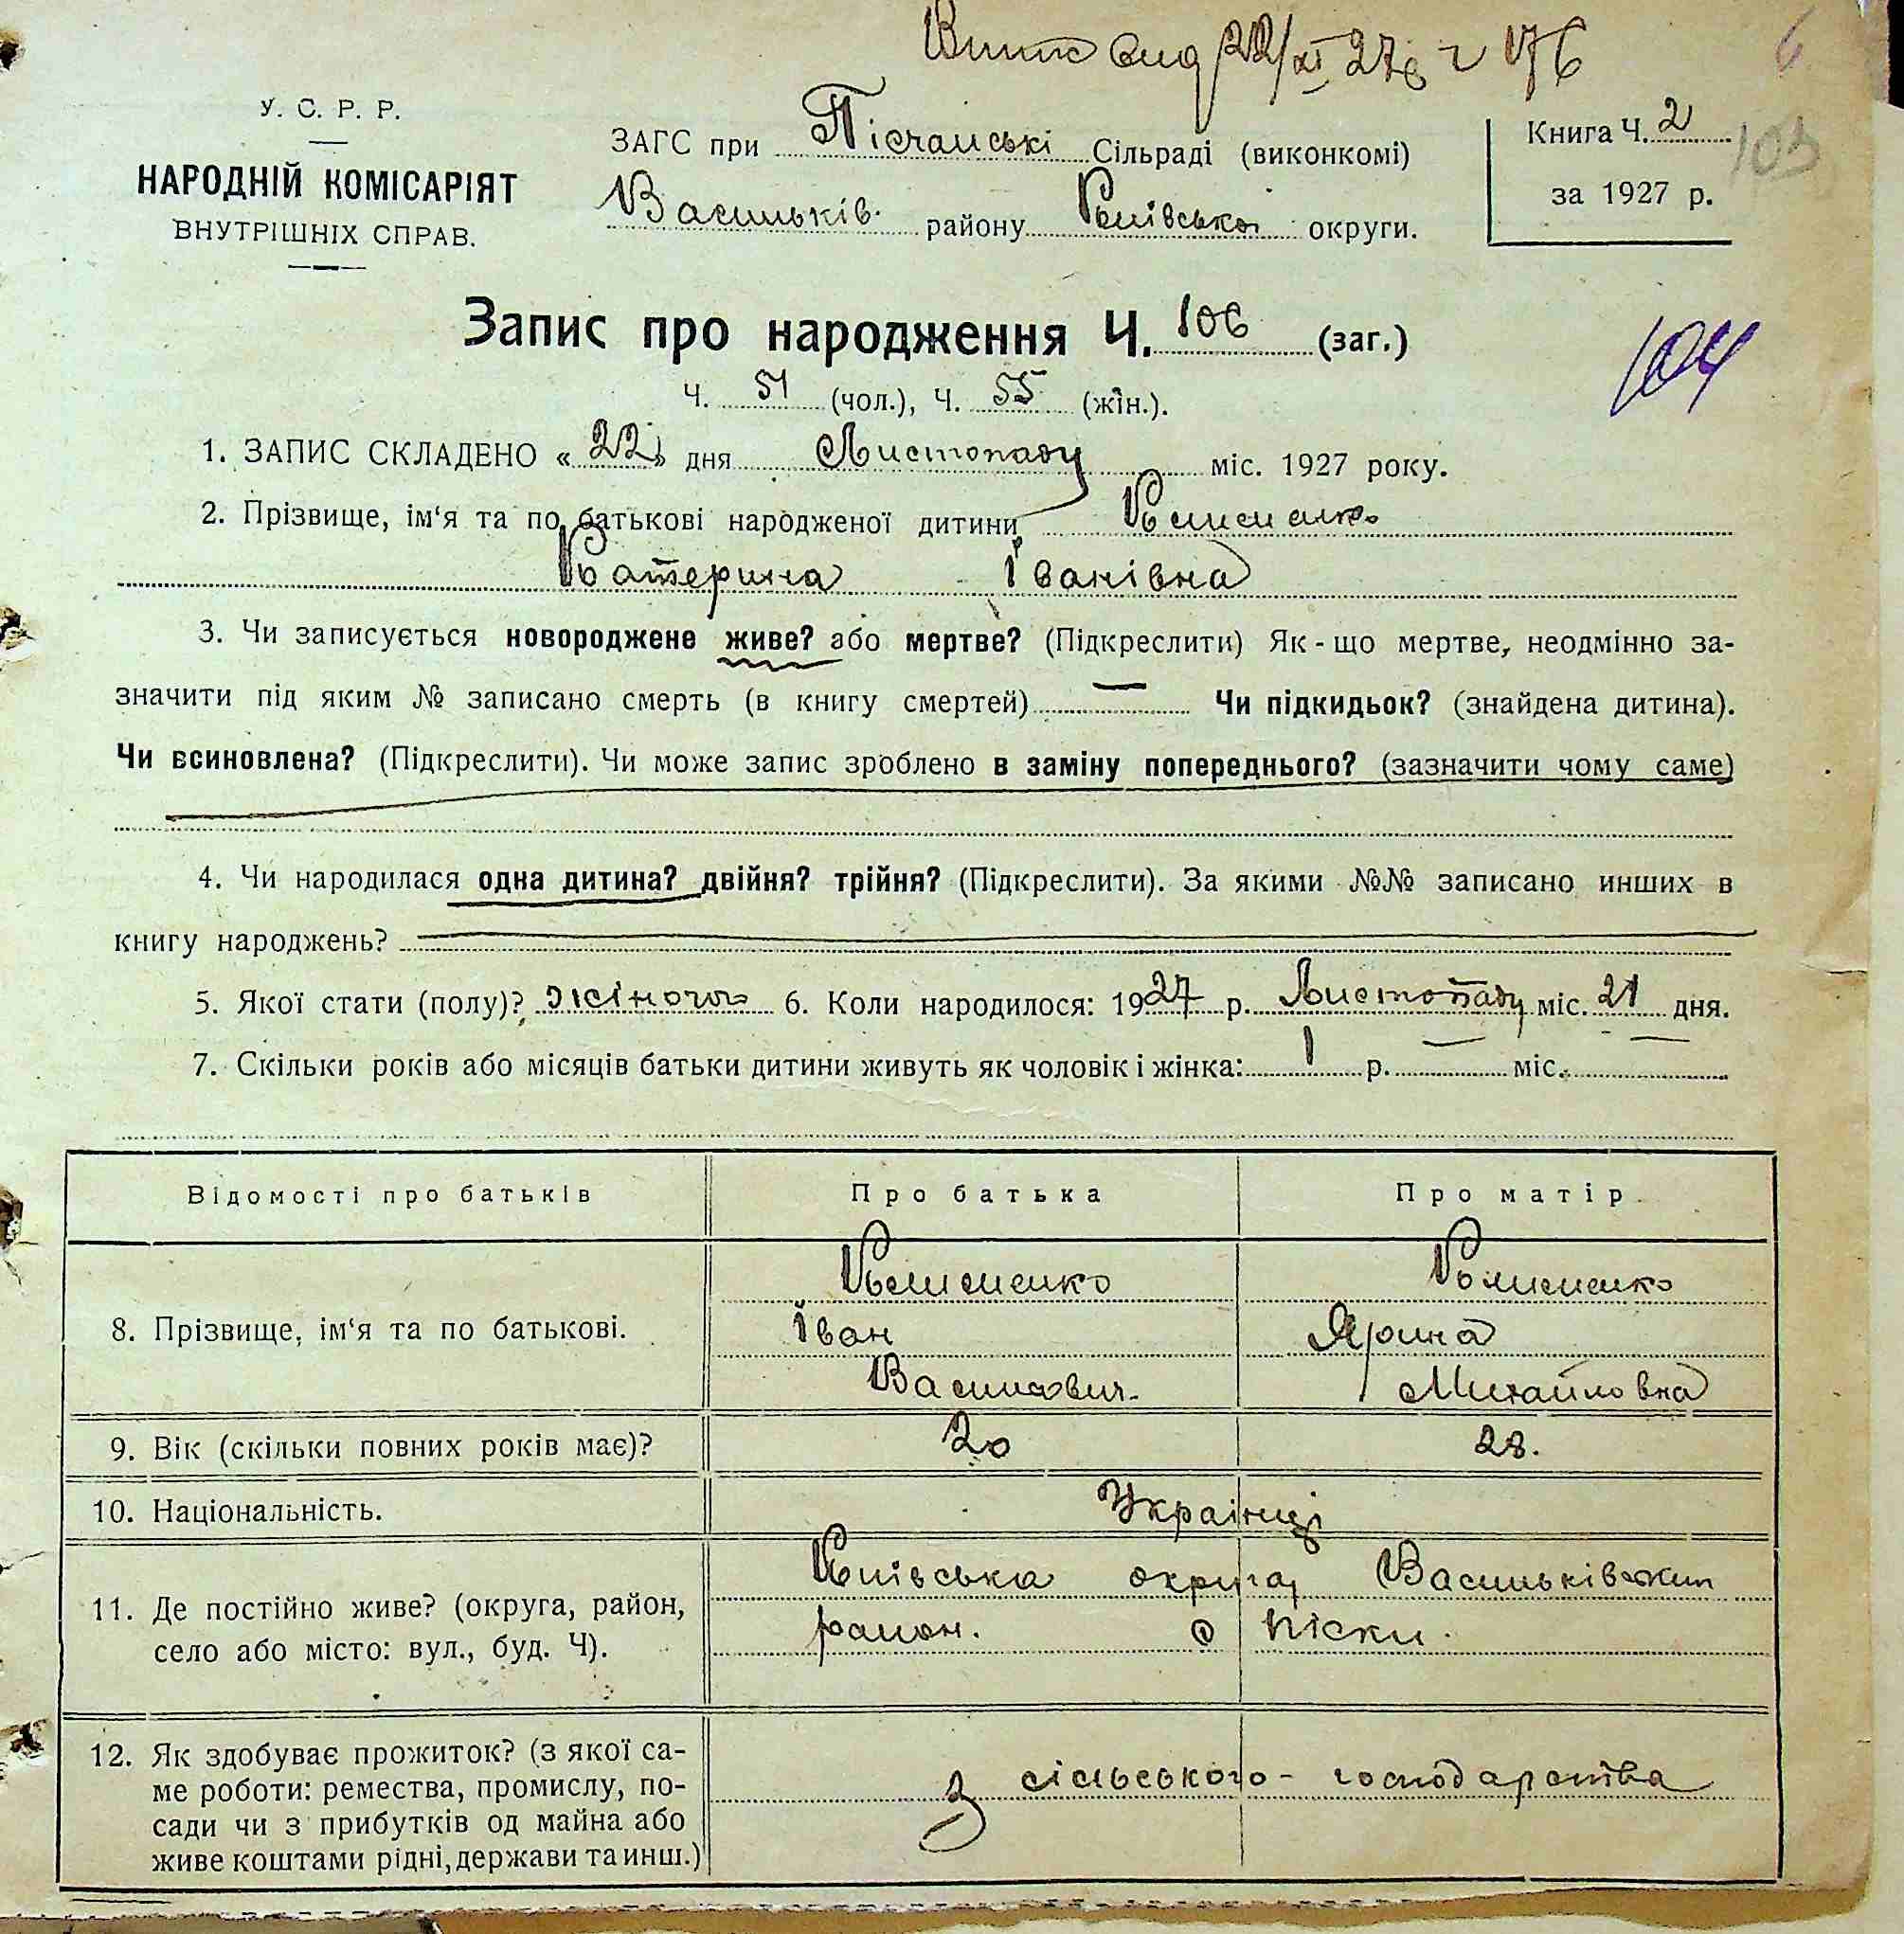 У. С. Р. Р.
НАРОДНІЙ КОМІСАРІЯТ
ВНУТРІШНІХ СПРАВ.
22/XI 27 176
ЗАГС при Пісчанські Сільраді (виконкомі)
Васильків. району Київської округи.
Книга Ч. 2
103
за 1927 р.
Запис про народження Ч. 106 (заг.)
104
Ч. 51 (чол.), Ч. 55 (жін.).
1. ЗАПИС СКЛАДЕНО « 22 » дня Листопаду міс. 1927 року.
2. Прізвище, ім‘я та по батькові народженої дитини Клименко
Катерина Іванівна
3. Чи записується новороджене живе? або мертве? (Підкреслити) Як-що мертве, неодмінно за-
значити під яким № записано смерть (в книгу смертей) — Чи підкидьок? (знайдена дитина).
Чи всиновлена? (Підкреслити). Чи може запис зроблено в заміну попереднього? (зазначити чому саме)
4. Чи народилася одна дитина? двійня? трійня? (Підкреслити). За якими №№ записано инших в
книгу народжень?
5. Якої стати (полу)? жіночої 6. Коли народилося: 1927 р. Листопаду міс. 21 дня.
7. Скільки років або місяців батьки дитини живуть як чоловік і жінка: 1 р. — міс. —
Відомості про батьків Про батька Про матір
8. Прізвище, ім‘я та по батькові.
Клименко Клименко
Іван Ярина
Василович. Михайловна
9. Вік (скільки повних років має)? 20 23.
10. Національність. Українці
11. Де постійно живе? (округа, район,
село або місто: вул., буд. Ч).
Київська округа Васильківський
район. с Піски.
12. Як здобуває прожиток? (з якої са-
ме роботи: ремества, промислу, по-
сади чи з прибутків од майна або
живе коштами рідні, держави та инш.)
З сільського-господарства